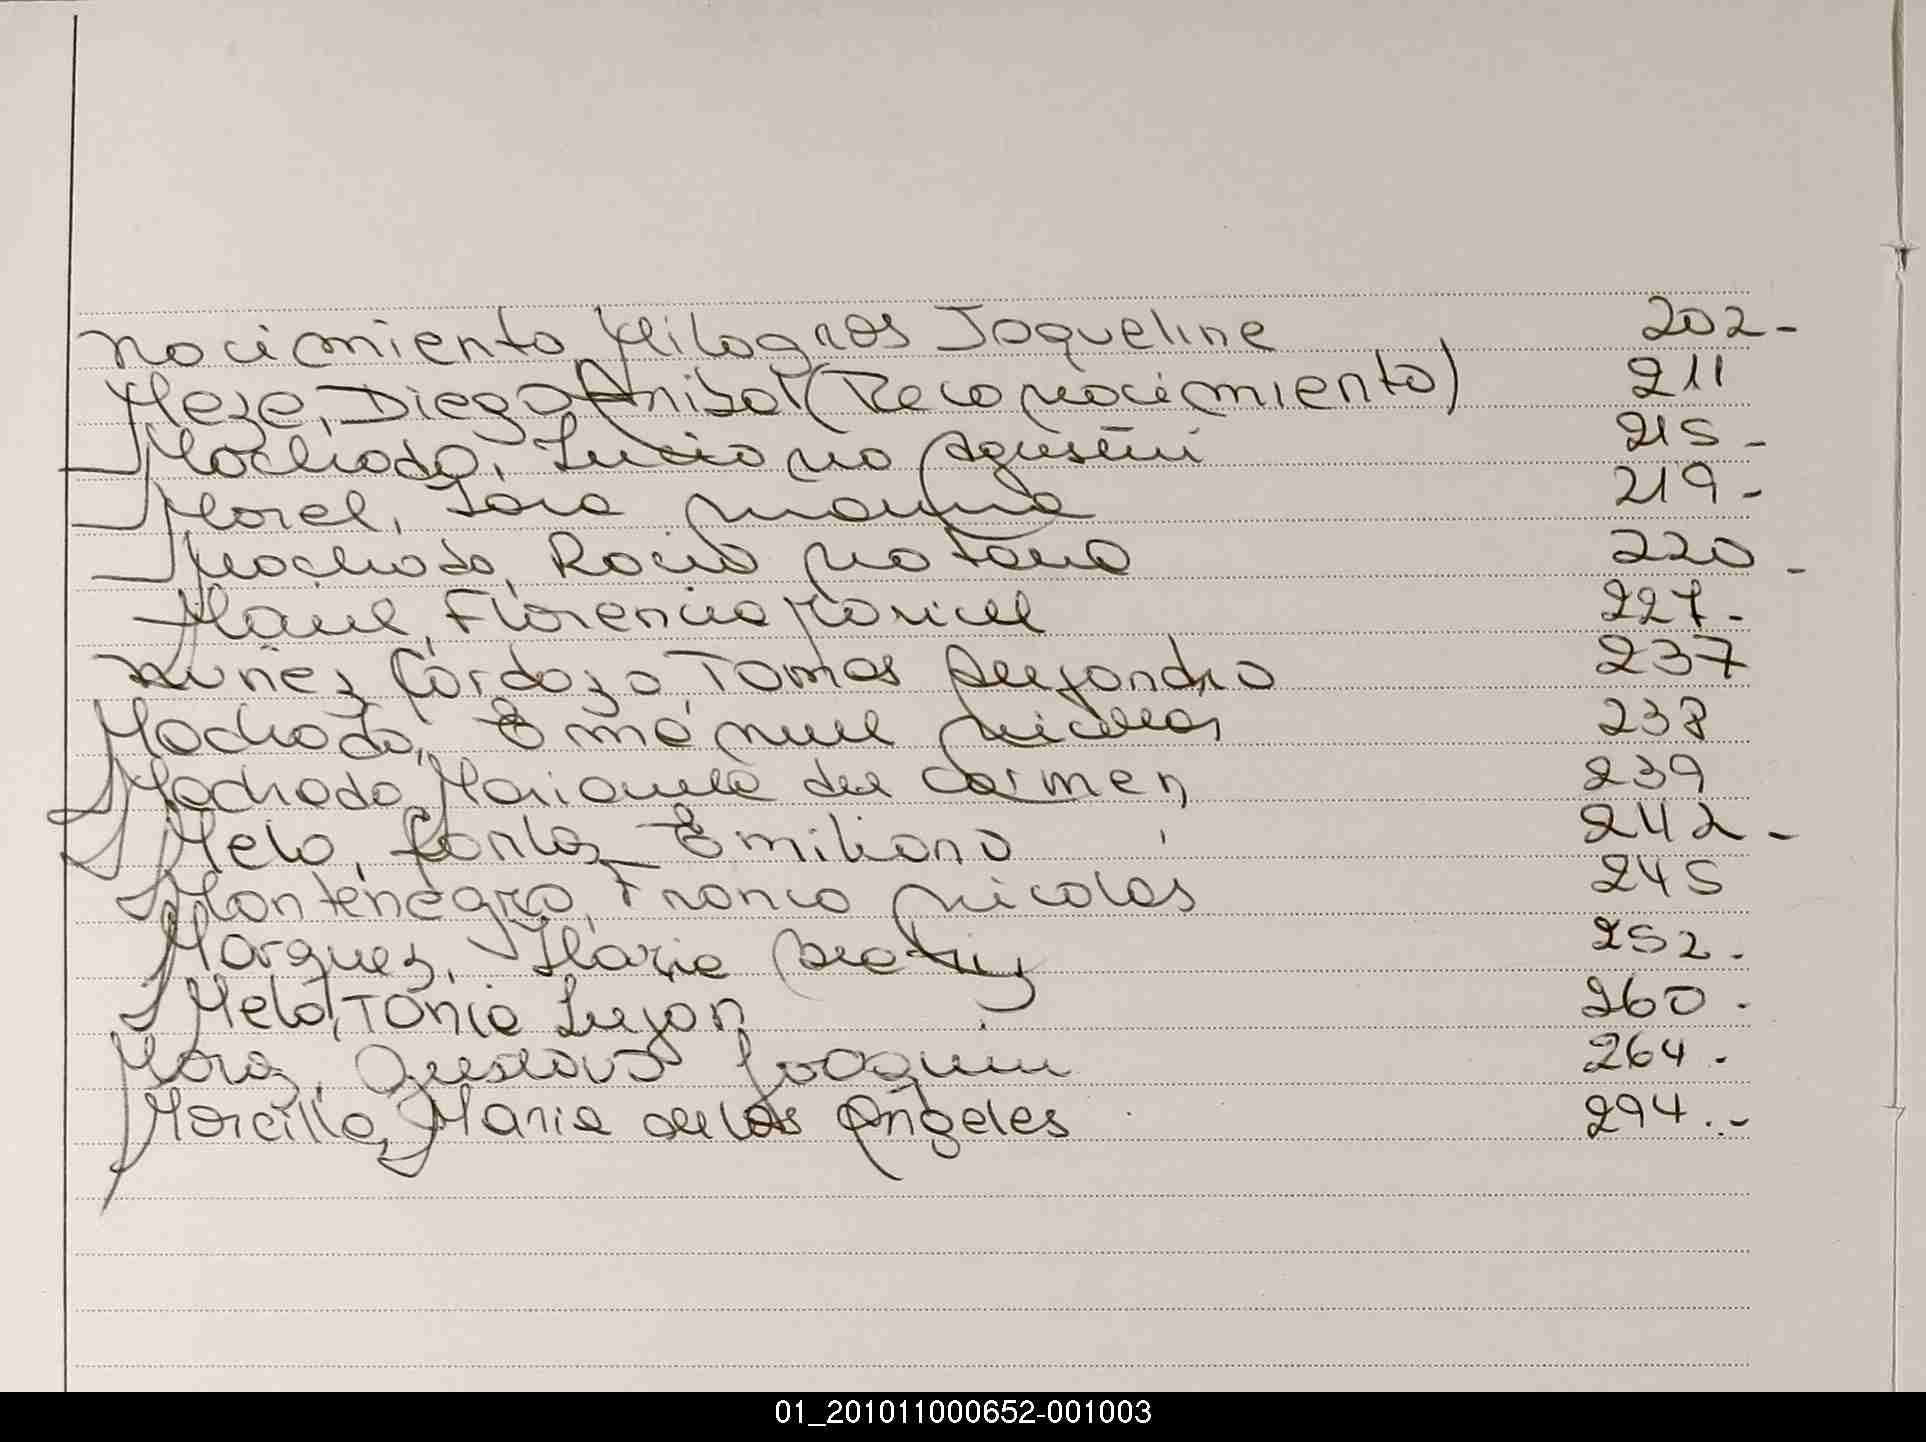 nacimiento Milagros Jaqueline 202-
Meza, Diego Anibal (Reconocimiento) 211
Machado, Luciano Agustin 215-
Morel, Sara 219-
Machado, Rocio 220-
Florencia 227-
Nuñez Cardozo, Tomas Alejandro 237
Machado, Emanuel Nicolas 238
Machado, Marianela del Carmen 239
Melo, Carlos Emiliano 242-
Montenegro, Franco Nicolas 245
Marquez, 252.
Melo, Tania Lujan 260.
Mora, Gustavo Joaquin 264.
Morcillo, Maria de los Angeles 294.-
01_201011000652-001003